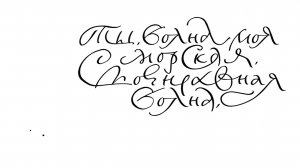 Ты, волна моя
морская,
Своенравная
волна,